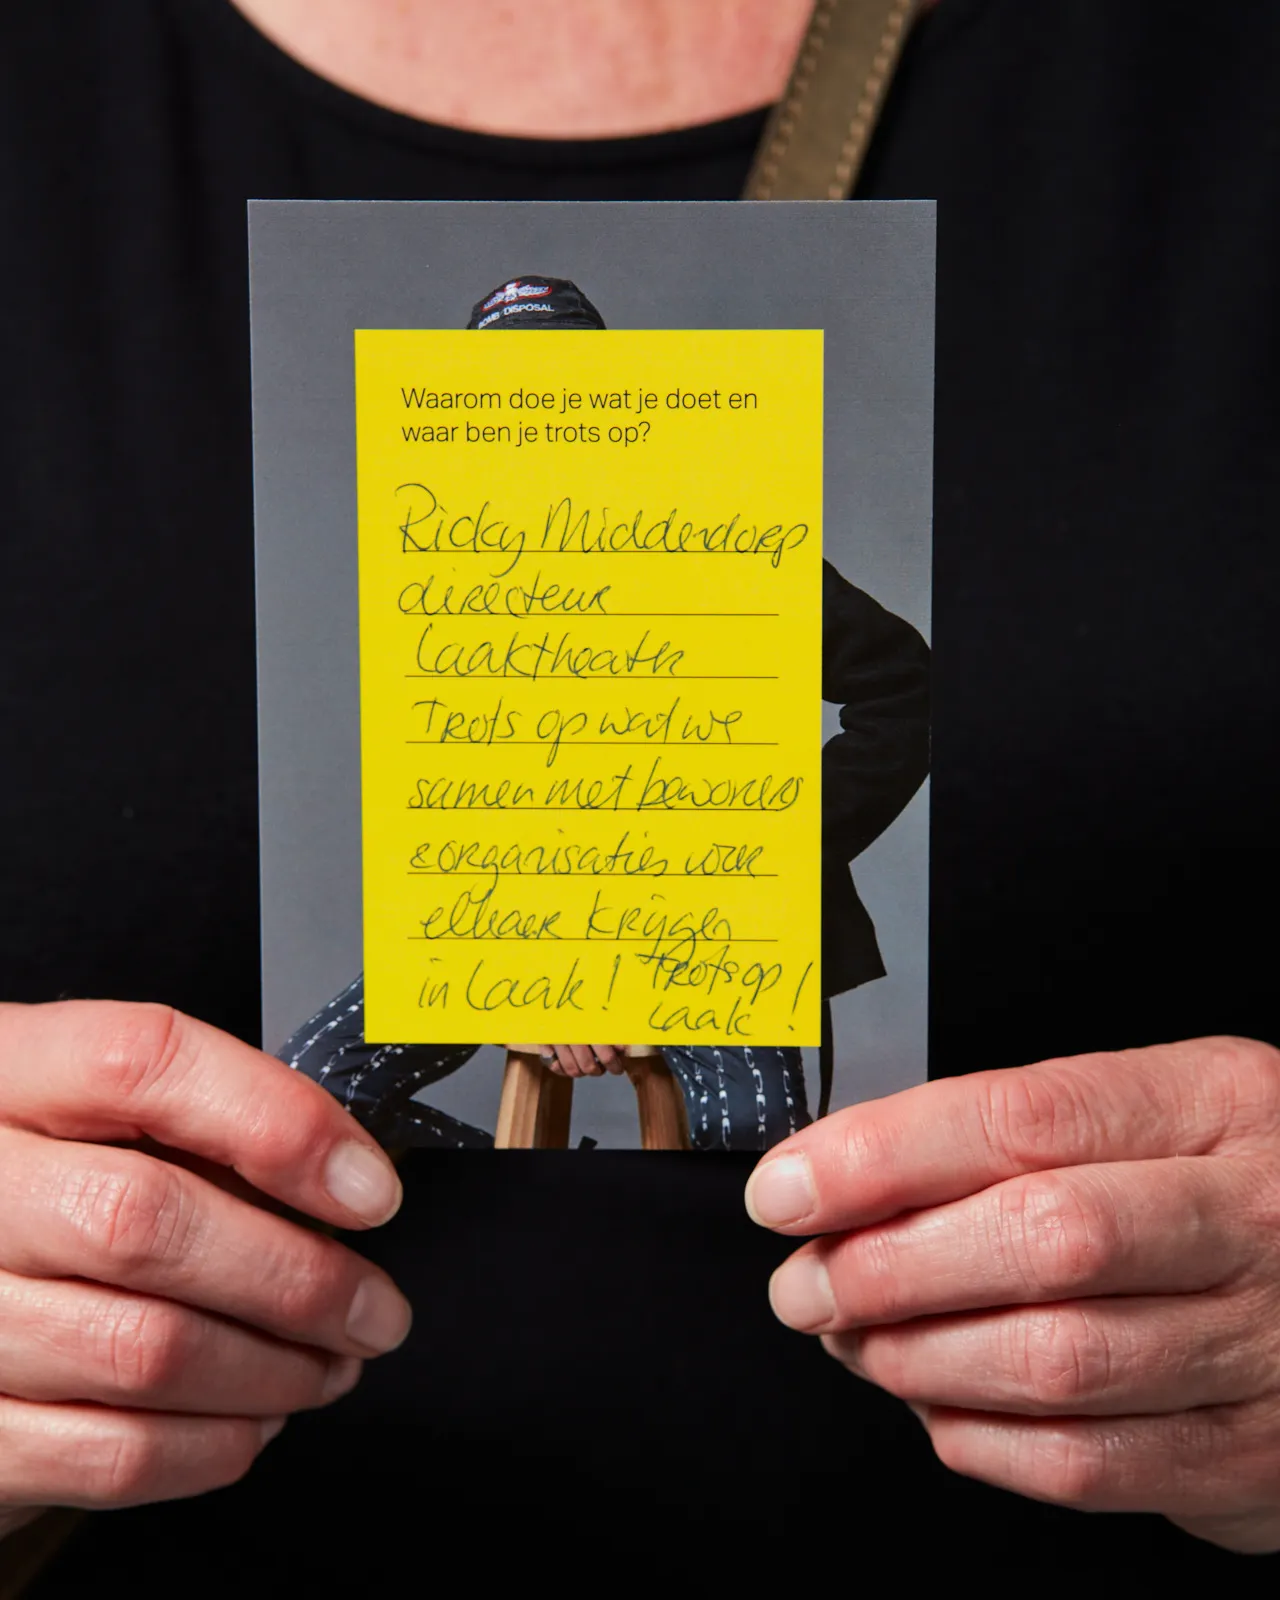 BOMB DISPOSAL
Waarom doe je wat je doet en
waar ben je trots op?
Ricky Middendorp
directeur
Laaktheater
Trots op wat we
samen met bewoners
& organisaties voor
elkaar krijgen
in Laak! Trots op
Laak!